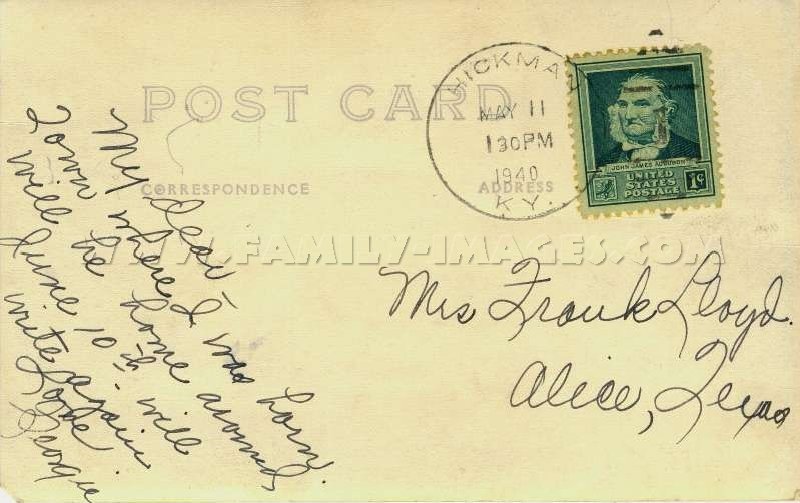 POST CARD
CORRESPONDENCE
ADDRESS
HICKMAN
MAY 11
130PM
1940
KY.
JOHN JAMES AUDUBON
UNITED
STATES
POSTAGE
1¢
WWW.FAMILY-IMAGES.COM
My dear -
Town where I was born.
will be home around
June 10th. will
write again
Love
Georgie
Mrs Frank Lloyd.
Alice, Texas